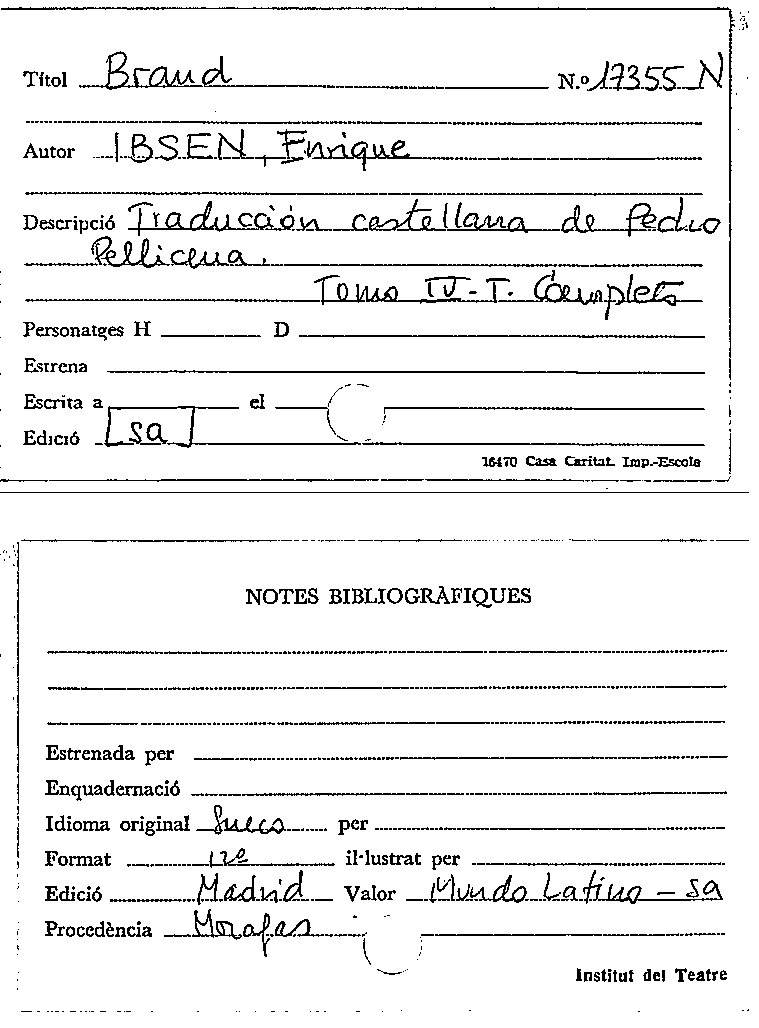 Títol Brand N.º 17355 N
Autor IBSEN, Enrique
Descripció Traducción castellana de Pedro
Pellicena.
Tomo IV - T. Complets
Personatges H D
Estrena
Escrita a el
Edició sa
16470 Casa Caritat. Imp.-Escola
NOTES BIBLIOGRÀFIQUES
Estrenada per
Enquadernació
Idioma original Sueco per
Format 12º il·lustrat per
Edició Madrid Valor Mundo Latino - sa
Procedència Morafas
Institut del Teatre